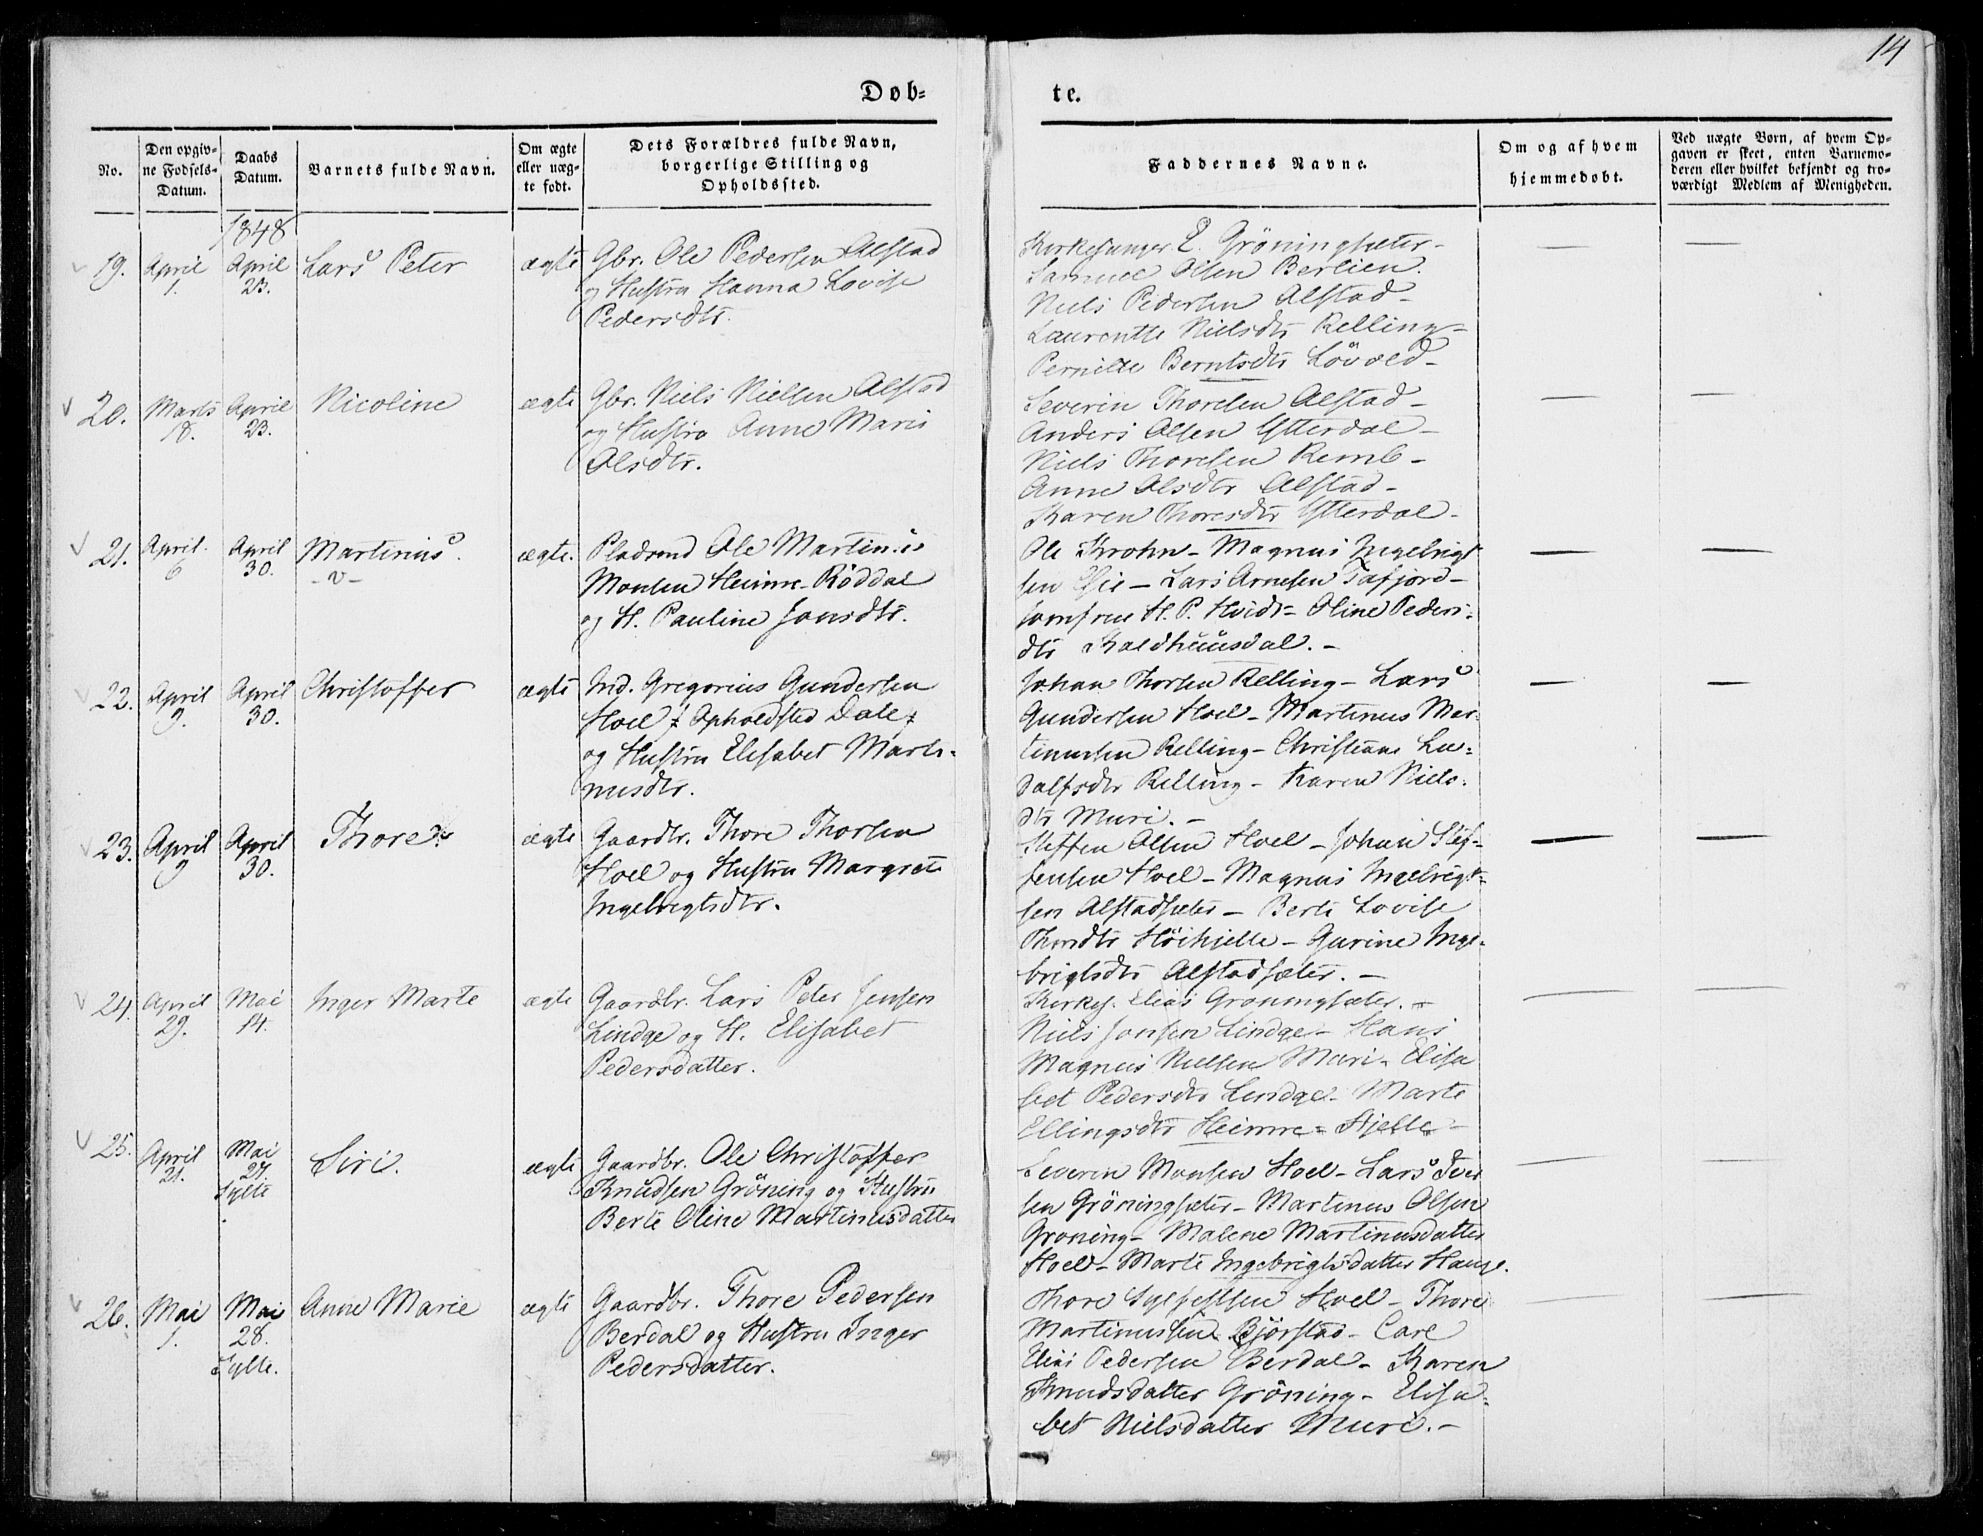 14
Døb-
te.
No.
Den opgiv-
ne Fødsels-
Datum.
Daabs
Datum.
Barnets fulde Navn.
Om ægte
eller uæg-
te født.
Dets Forældres fulde Navn,
borgerlige Stilling og
Opholdssted.
Faddernes Navne.
Om og af hvem
hjemmedøbt.
Ved uægte Børn, af hvem Op-
gaven er skeet, enten Barnemo-
deren eller hvilket bekjendt og tro-
værdigt Medlem af Menigheden.
1848
19.
April
1.
April
23.
Lars Peter
ægte
Gbr. Ole Pedersen Alstad
og Hustru Hanna Lovise
Pedersdtr.
Kirkesanger E. Gröningsæter -
Samuel Olsen Berlien.
Niels Pedersen Alstad -
Laurentse Nielsdtr Relling -
Pernille Berntsdtr Lövold -
20.
Marts
18.
April
23.
Nicoline
ægte
Gbr. Niels Nielsen Alstad
og Hustru Anne Marie
Olsdtr.
Severin Thoresen Alstad -
Anders Olsen Ytterdal -
Niels Thoresen Remb -
Anne Olsdtr Alstad -
Karen Thoresdtr Ytterdal -
21.
April
6
April
30.
Martinus.
- v -
ægte.
Pladsmd Ole Martinus
Monsen Heimre-Röddal
og H. Pauline Jonsdtr.
Ole Krohn - Magnus Ingebrigt
sen - Lars Arnesen Tafjord -
Jomfrue H. P. Hvidt - Oline Peders-
dtr Kaldhuusdal. -
22.
April
9.
April
30.
Christoffer
ægte
Ind. Gregorius Gundersen
Hoel Opholdsted Dale
og Hustru Elisabet Marti-
nusdtr.
Johan Thorsen Relling - Lars
Gundersen Hoel - Martinus Mar-
tinussen Relling - Christiane Lu-
dalfsdtr Relling - Karen Niels-
dtr Muri. -
23.
April
9
April
30.
Thore
ægte
Gaardbr. Thore Thorsen
Hoel og Hustru Margrete
Ingebrigtsdtr.
Steffen Olsen Hoel - Johan Stef-
fensen Hoel - Magnus Ingebrigt-
sen Alstadsæter - Berte Lovise
Thordtr Höihjelle - Gurine Inge-
brigtsdtr Alstadsæter. -
24.
April
29.
Mai
14.
Inger Marte
ægte
Gaardbr. Lars Peter Jensen
Lindge og H. Elisabet
Pedersdatter.
Kirkes. Elias Gröningsæter. -
Niels Jensen Lindge - Hans
Magnus Nielsen Muri - Elisa
bet Pedersdtr Lindge - Marte
Ellingsdtr Heimre-Hjelle -
25.
April
21.
Mai
27.
Sylte
Siri.
ægte
Gaardbr. Ole Christoffer
Knudsen Gröning og Hustru
Berte Oline Martinusdatter
Severin Monsen Hoel - Lars Iver
sen Gröningsæter - Martinus Olsen
Groning - Malene Martinusdatter
Hoel - Marte Ingebrigtsdatter Hauge.
26.
Mai
1.
Mai
28.
Sylte.
Anne Marie
ægte
Gaardbr. Thore Pedersen
Berdal og Hustru Inger
Pedersdatter.
Thore Sylfestsen Hoel - Thore
Martinussen Bjørstad - Carl
Elias Pedersen Berdal - Karen
Knudsdatter Gröning - Elisa-
bet Nielsdatter Muri. -